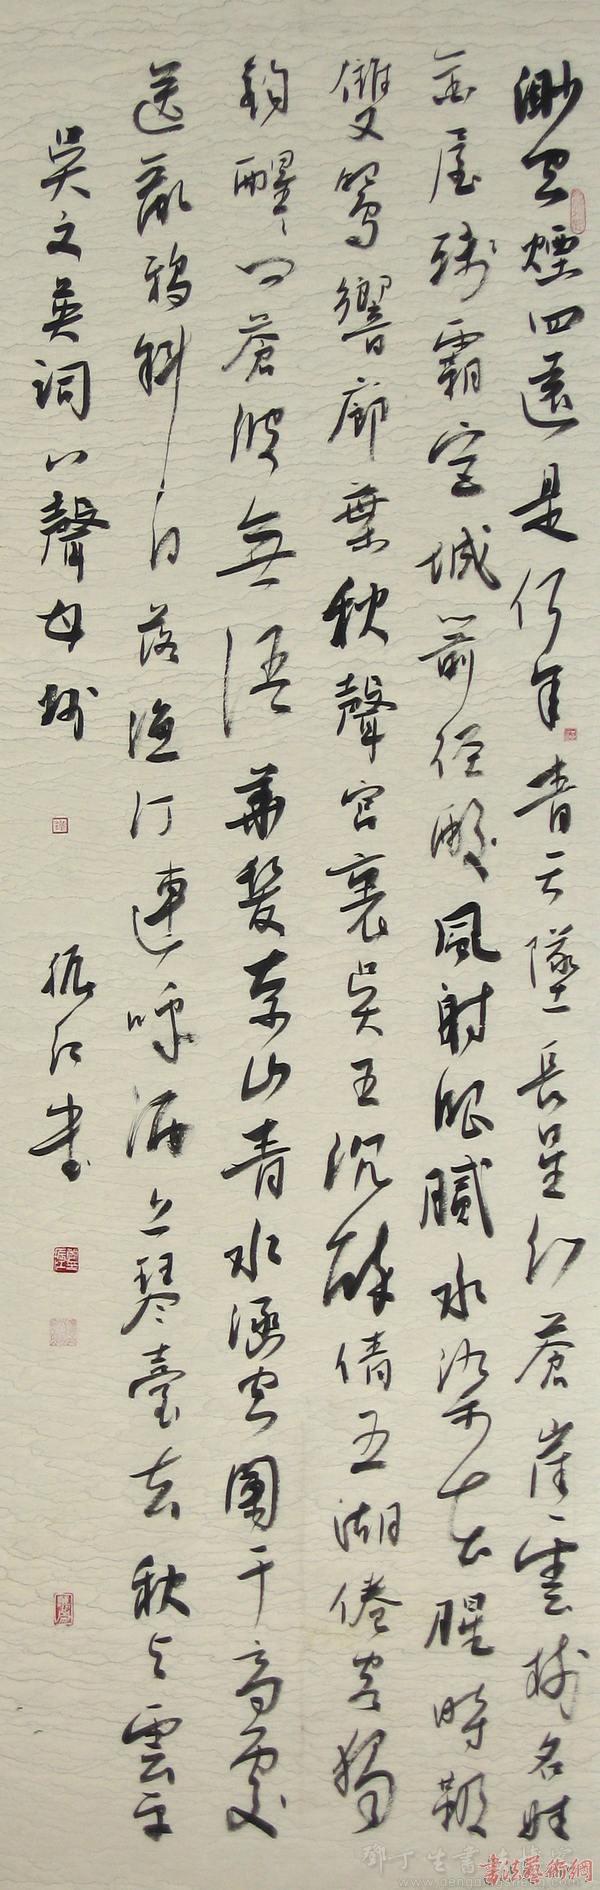 渺空煙四遠是何年青天墜長星幻蒼崖雲樹名娃
金屋殘霸宮城箭徑酸風射眼膩水染花腥時靸
雙鴛響廊葉秋聲宮裏吳王沉醉倩五湖倦客獨
釣醒々問蒼波無語華髮奈山青水涵空闌干高處
送亂鴉斜日落漁汀連呼酒上琴臺去秋與雲平
吳文英詞八聲甘州
振江书
鄧丁生書法
書法藝術網